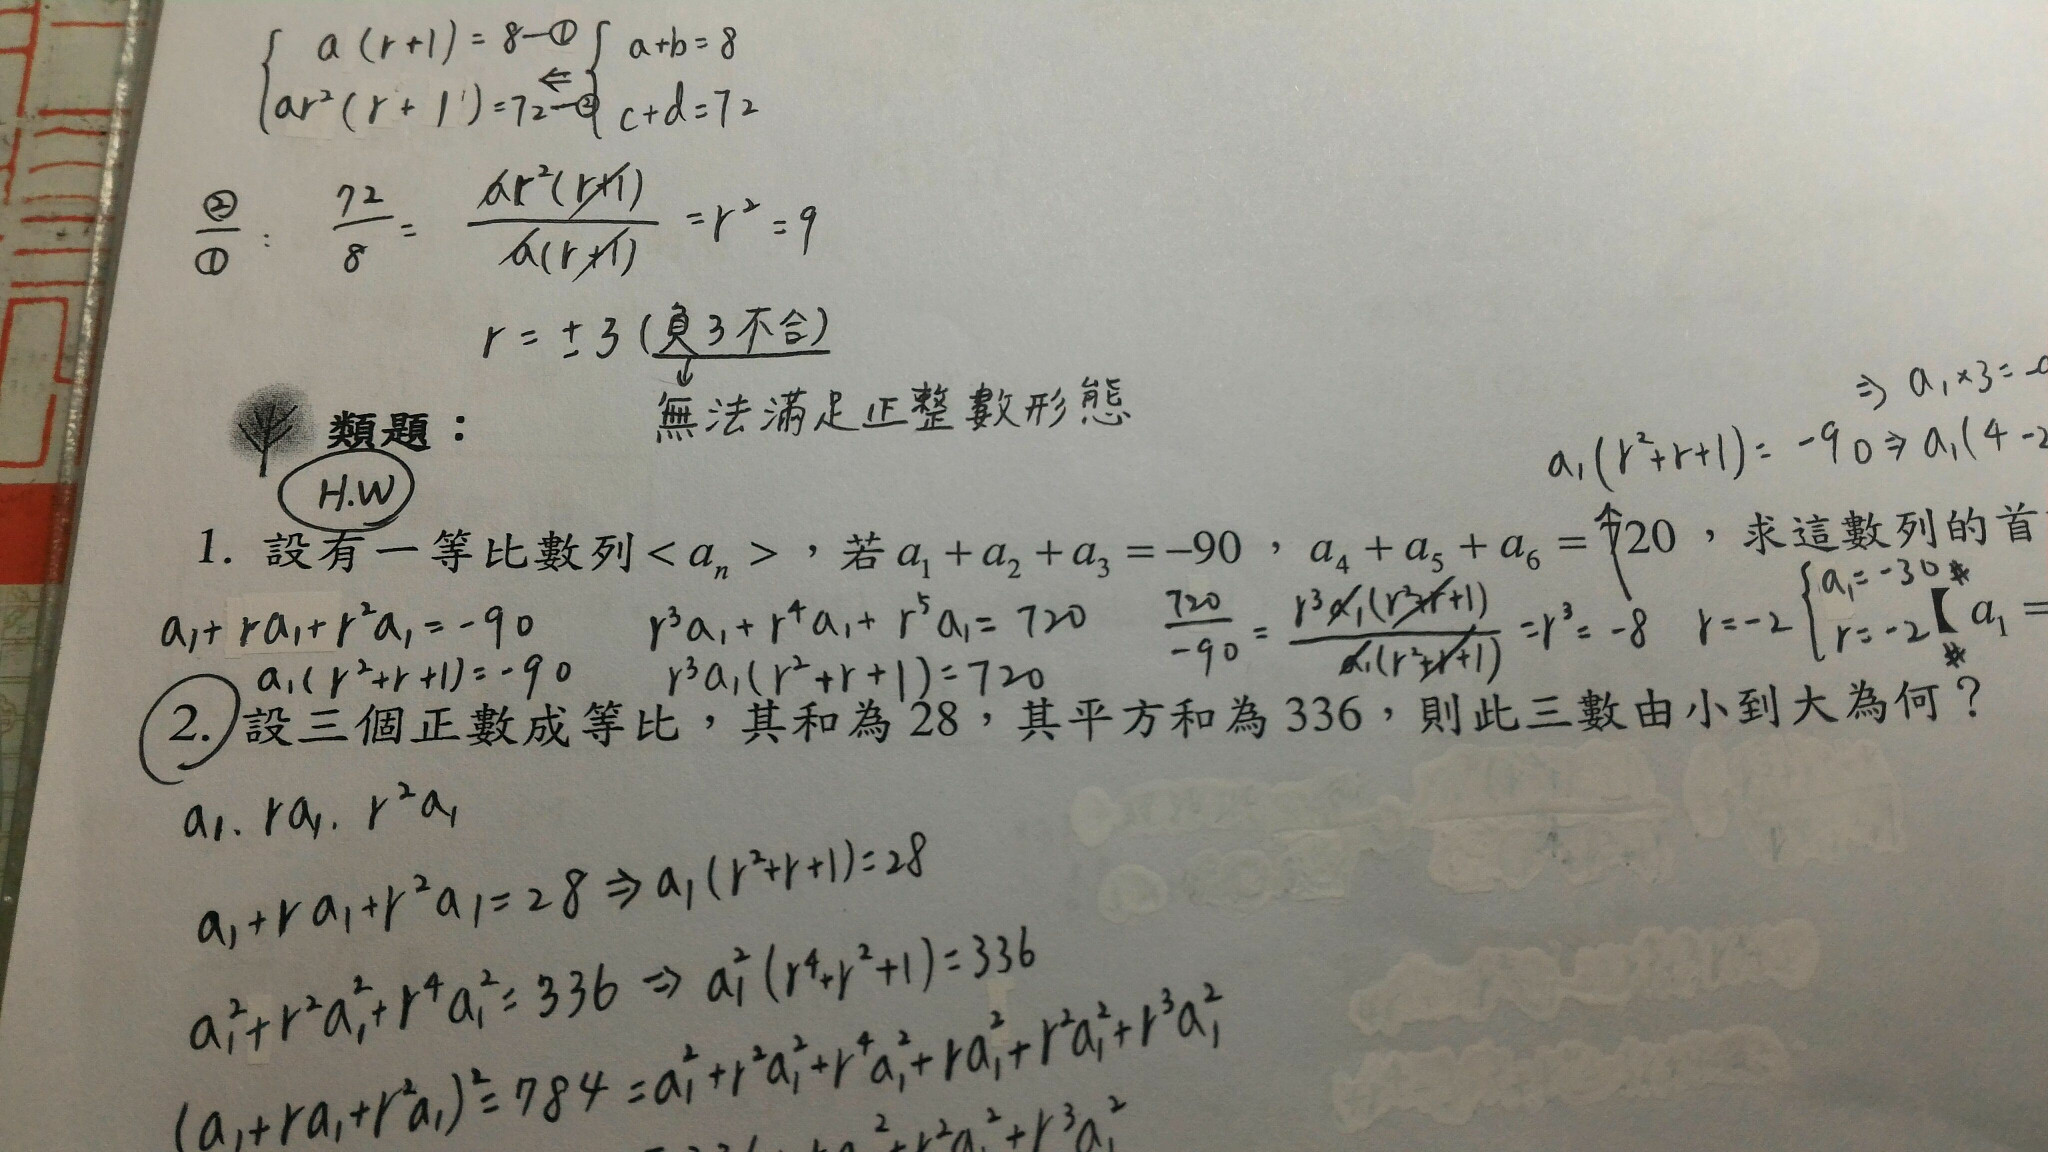 a(r+1)=8—① { a+b=8
ar²(r+1)=72—② ⇐ { c+d=72
②/① : 72/8 = ar²(r+1)/a(r+1) =r²=9
r=±3(負3不合)
↓
無法滿足正整數形態
類題：
H.W
⇒ a₁×3=
a₁(r²+r+1)=-90⇒a₁(4-2
1. 設有一等比數列<aₙ>，若a₁+a₂+a₃=-90，a₄+a₅+a₆=720，求這數列的首
a₁+ra₁+r²a₁=-90 r³a₁+r⁴a₁+r⁵a₁=720 720/-90 = r³a₁(r²+r+1)/a₁(r²+r+1) =r³=-8 r=-2 { a₁=-30 【a₁=
a₁(r²+r+1)=-90 r³a₁(r²+r+1)=720 r=-2
2. 設三個正數成等比，其和為28，其平方和為336，則此三數由小到大為何？
a₁. ra₁. r²a₁
a₁+ra₁+r²a₁=28⇒a₁(r²+r+1)=28
a₁²+r²a₁²+r⁴a₁²=336⇒a₁²(r⁴+r²+1)=336
(a₁+ra₁+r²a₁)²=784=a₁²+r²a₁²+r⁴a₁²+ra₁²+r²a₁²+r³a₁²
+r²a₁²+r³a₁²